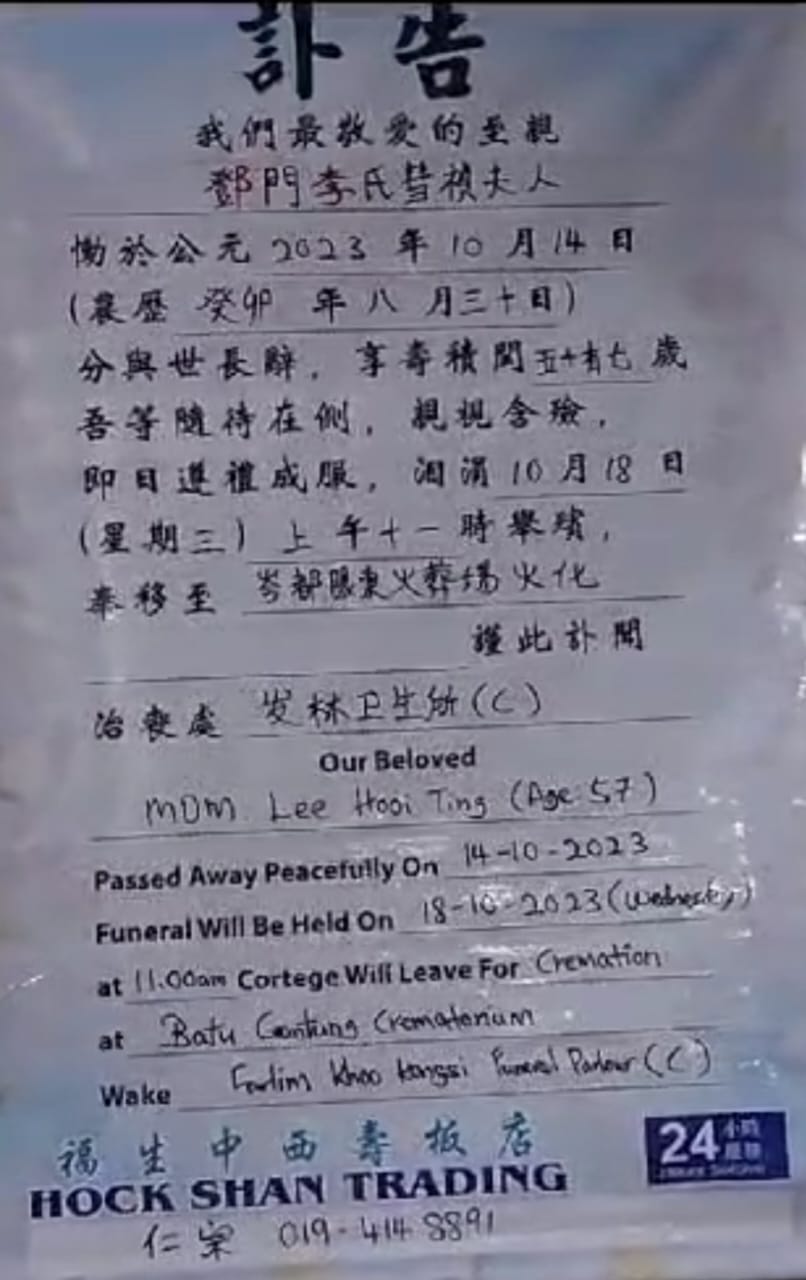 訃告
我們最敬愛的至親
鄧門李氏彗禎夫人
慟於公元 2023 年 10 月 14 日
(農歷 癸卯 年 八 月三十日)
分與世長辭，享壽積閏五十有七歲
吾等隨待在側，親視含殮，
即日遵禮成服，泪涓 10 月 18 日
(星期三) 上午十一時舉殯，
奉移至 峇都眼東火葬場火化
謹此訃聞
治喪處 发林卫生所(C)
Our Beloved
MDM Lee Hooi Ting (Age: 57)
Passed Away Peacefully On 14-10-2023
Funeral Will Be Held On 18-10-2023 (Wednesday)
at 11.00am Cortege Will Leave For Cremation
at Batu Gantung Crematorium
Wake Farlim Khoo Kongsi Funeral Parlour (C)
福生中西壽板店
24 小時
HOCK SHAN TRADING
019-414 8891